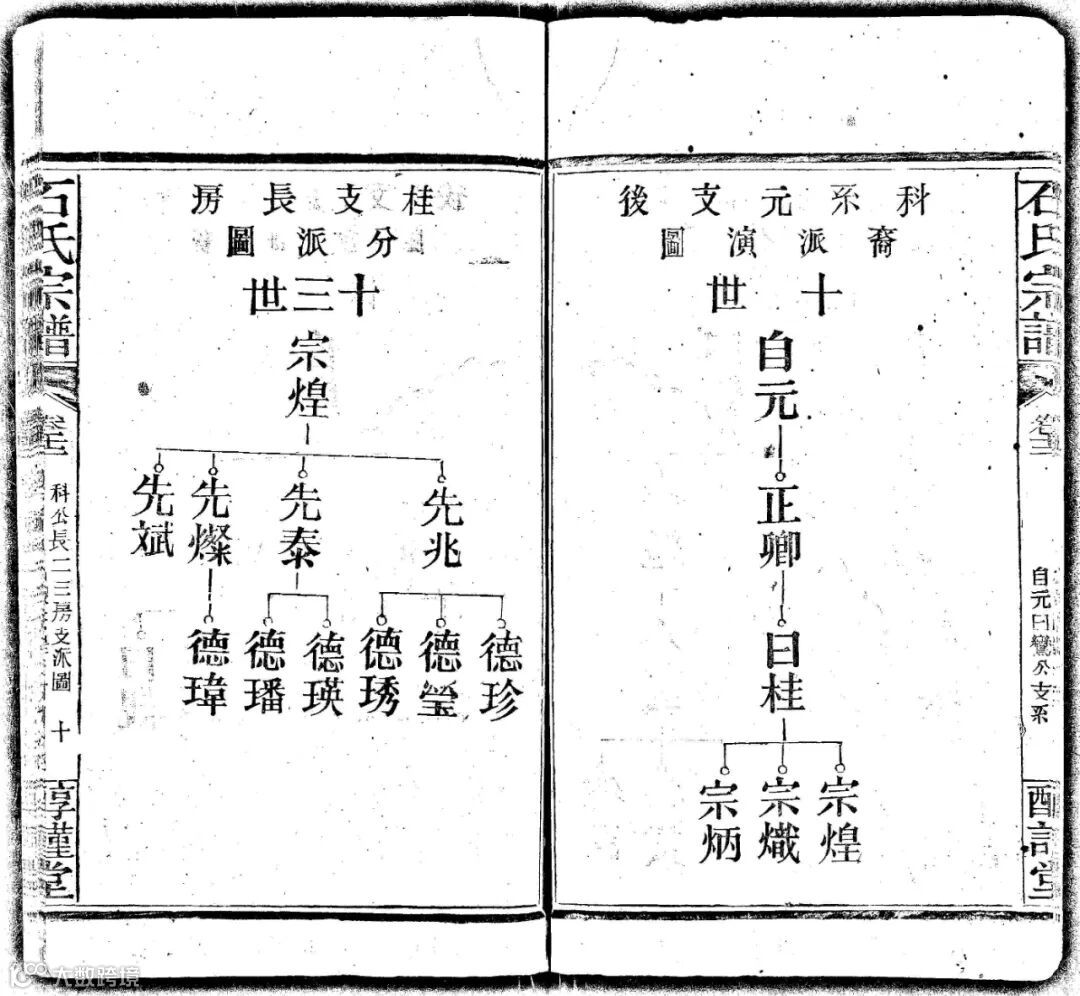 石氏宗譜
自元曰鸞公支系
科系元支後
裔派演圖
十世
自元
正卿
曰桂
宗煌
宗熾
宗炳
桂支長房
分派圖
十三世
宗煌
先兆
先泰
先燦
先斌
德珍
德瑩
德琇
德瑛
德璠
德瑋
石氏宗譜
科公長二三房支派圖
十
大数跨境